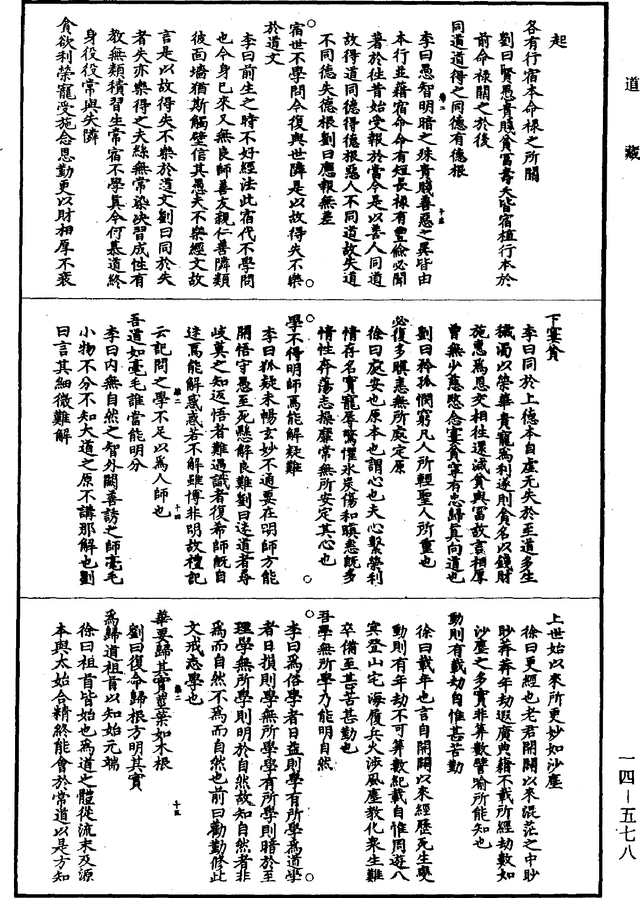 道藏
起
各有行宿本命祿之所關
劉曰賢愚貴賤貧富壽夭皆宿植行本於
前命祿關之於後
同道道得之同德有德根
李曰愚智明暗之殊貴賤善惡之異皆由
本行並藉宿命命有短長祿有豐儉必關
著於往昔始受報於當今是以善人同道
故得道同德得德根惡人不同道故失道
不同德失德根劉曰應報無差
宿世不學問今復與世隣是以故得失不樂
於道文
李曰前生之時不好經法此宿代不學問
也今身已來又無良師善友親仁善隣類
彼面墻猶斯觸壁信其愚夫不樂經文故
言是以故得失不樂於道文劉曰同於失
者失亦樂得之夫絲無常染決習成性有
教無類積習生常宿不學真今何慕道終
身役役常與失隣
貪欲利榮寵受施念恩勤更以財相厚不衰
下窶貧
李曰同於上德本自虛无失於至道多生
穢濁以榮華貴寵爲利遂則貪名以錢財
施惠爲恩交相往還減貧與富故言相厚
曾無少慈愍念窶貧寧有忠歸真向道也
劉曰矜孤憫窮凡人所輕聖人所重也
必復多瞋恚無所處定原
徐曰處安也原本也謂心也夫心繫榮利
情存名實寵辱驚懼氷炭傷和瞋恚既多
情性奔蕩志操靡常無所安定其心也
學不得明師焉能解疑難
李曰狐疑未暢玄妙不通要在明師方能
開悟守愚至死懸解良難劉曰迷道者尋
岐莫之知返悟者難遇識者復希師既自
迷焉能解惑惑若不解雖博非明故禮記
云記問之學不足以爲人師也
吾道如毫毛誰當能明分
李曰内無自然之智外闕善誘之師毫毛
小物不分不知大道之原不講那解也劉
曰言其細微難解
上世始以來所更妙如沙塵
徐曰更經也老君開闢以來混茫之中眇
眇莽莽年劫遐廣典籍不載所經劫數如
沙塵之多實非算數譬喻所能知也
動則有載劫自惟甚苦勤
徐曰載年也言自開闢以來經歷死生奭
動則有年劫不可筭數紀載自惟周遊八
冥登山宅海履兵火涉風塵教化衆生難
卒備至甚苦甚勤也
吾學無所學乃能明自然
李曰爲俗學者日益則學有所學爲道學
者日損則學無所學學有所學則暗於至
理學無所學則明於自然故知自然者非
爲而自然不爲而自然也前曰勸勤修此
文戒志學也
華要歸其實莖葉如木根
劉曰復命歸根方明其實
爲歸道祖首以知始元端
徐曰祖首皆始也爲道之體從流末及源
本與太始合精終能會於常道以是方知
一四—五七八